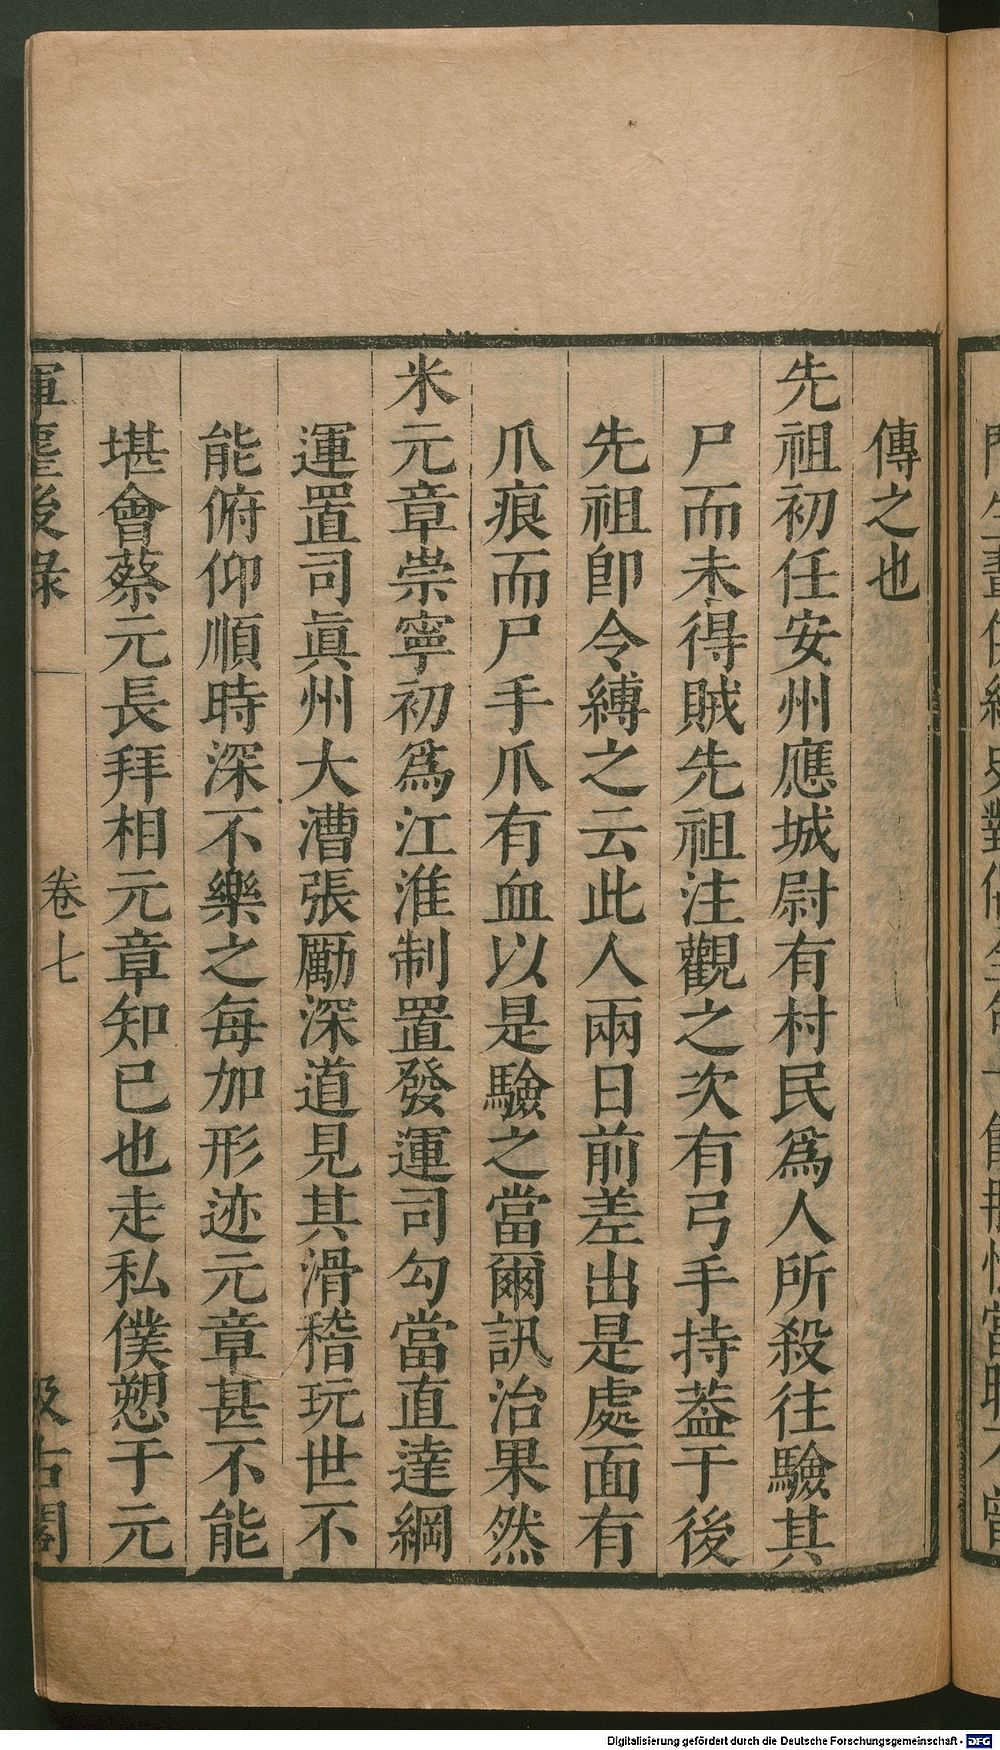 傳之也
先祖初任安州應城尉有村民爲人所殺往驗其
尸而未得賊先祖注觀之次有弓手持蓋于後
先祖卽令縛之云此人兩日前差出是處面有
爪痕而尸手爪有血以是驗之當爾訊治果然
米元章崇寧初爲江淮制置發運司勾當直達綱
運置司眞州大漕張勵深道見其滑稽玩世不
能俯仰順時深不樂之每加形迹元章甚不能
堪會蔡元長拜相元章知已也走私僕愬于元
揮麈後錄 卷七 汲古閣
Digitalisierung gefördert durch die Deutsche Forschungsgemeinschaft - DFG